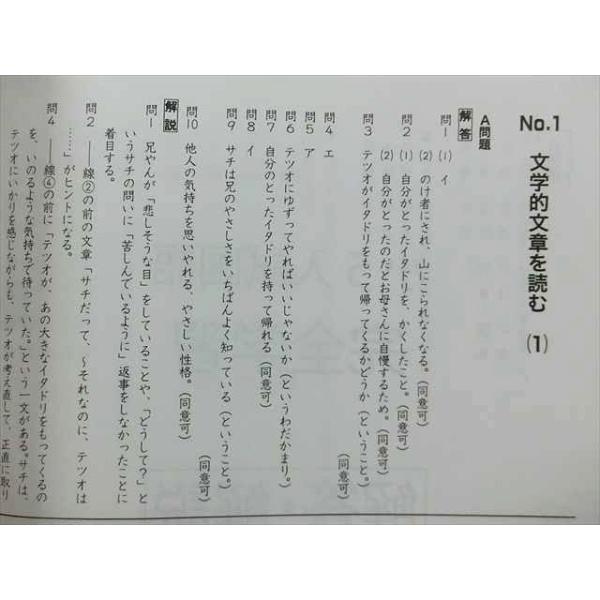 No.1 文学的文章を読む (1)
A問題
解答
問1 (1) イ
(2) のけ者にされ、山にこられなくなる。(同意可)
問2 (1) 自分がとったイタドリを、かくしたこと。(同意可)
(2) 自分がとったのだとお母さんに自慢するため。(同意可)
問3 テツオがイタドリをもって帰ってくるかどうか(ということ。)
(同意可)
問4 エ
問5 ア
問6 テツオにゆずってやればいいじゃないか(というわだかまり。)
問7 自分のとったイタドリを持って帰れる(同意可)
問8 イ
問9 サチは兄のやさしさをいちばんよく知っている(ということ。)
(同意可)
問10 他人の気持ちを思いやれる、やさしい性格。(同意可)
解説
問1 兄やんが「悲しそうな目」をしていることや、「どうして?」と
いうサチの問いに「苦しんでいるように」返事をしなかったことに
着目する。
問2 ――線②の前の文章「サチだって、~それなのに、テツオは
……」がヒントになる。
問4 ――線④の前に「テツオが、あの大きなイタドリをもってくるの
を、いのるような気持ちで待っていた。」という一文がある。サチは、
テツオにいかりを感じながらも、テツオが考え直して、正直に取り